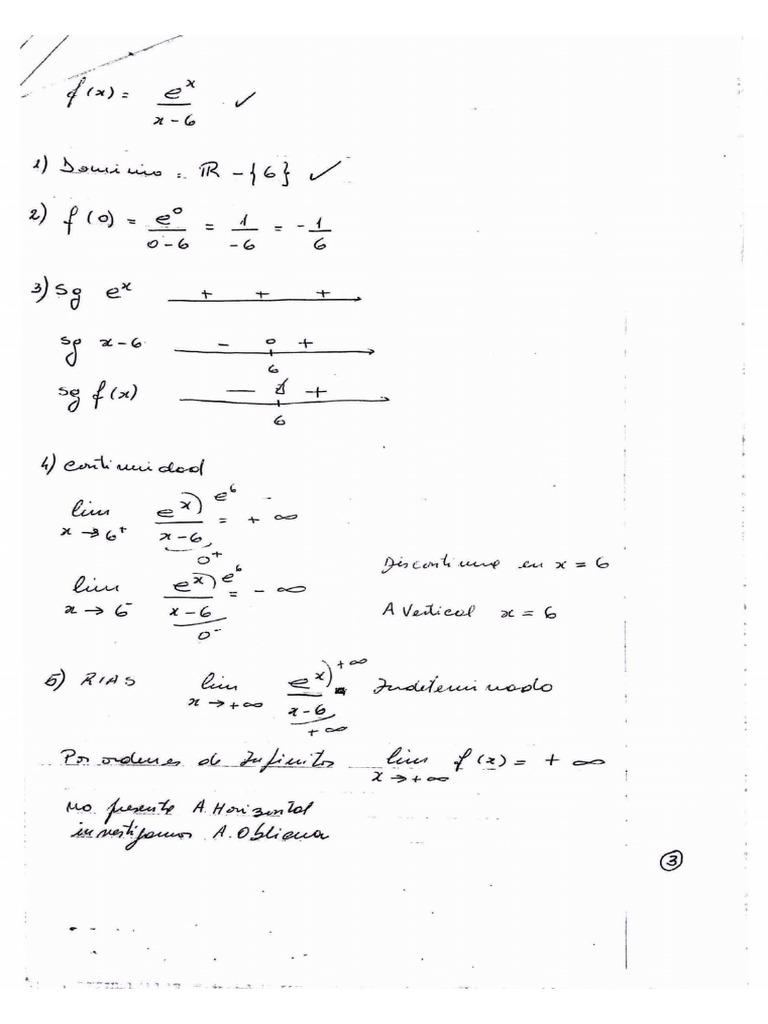 f(x) = e^x / (x-6) ✓
1) Dominio = ℝ - {6} ✓
2) f(0) = e^0 / (0-6) = 1 / -6 = - 1/6
3) sg e^x + + +
sg x-6 - 0 + 
6
sg f(x) — ∄ +
6
4) Continuidad
lim x→6+ e^x / (x-6) = + ∞ e^6 0+
lim x→6- e^x / (x-6) = - ∞ e^6 0-
Discontinua en x = 6
A Vertical x = 6
5) RIAS lim x→+∞ e^x / (x-6) = Indeterminado +∞ +∞
Por ordenes de Infinitos lim x→+∞ f(x) = + ∞
no presenta A. Horizontal
investigamos A. Oblicua
3